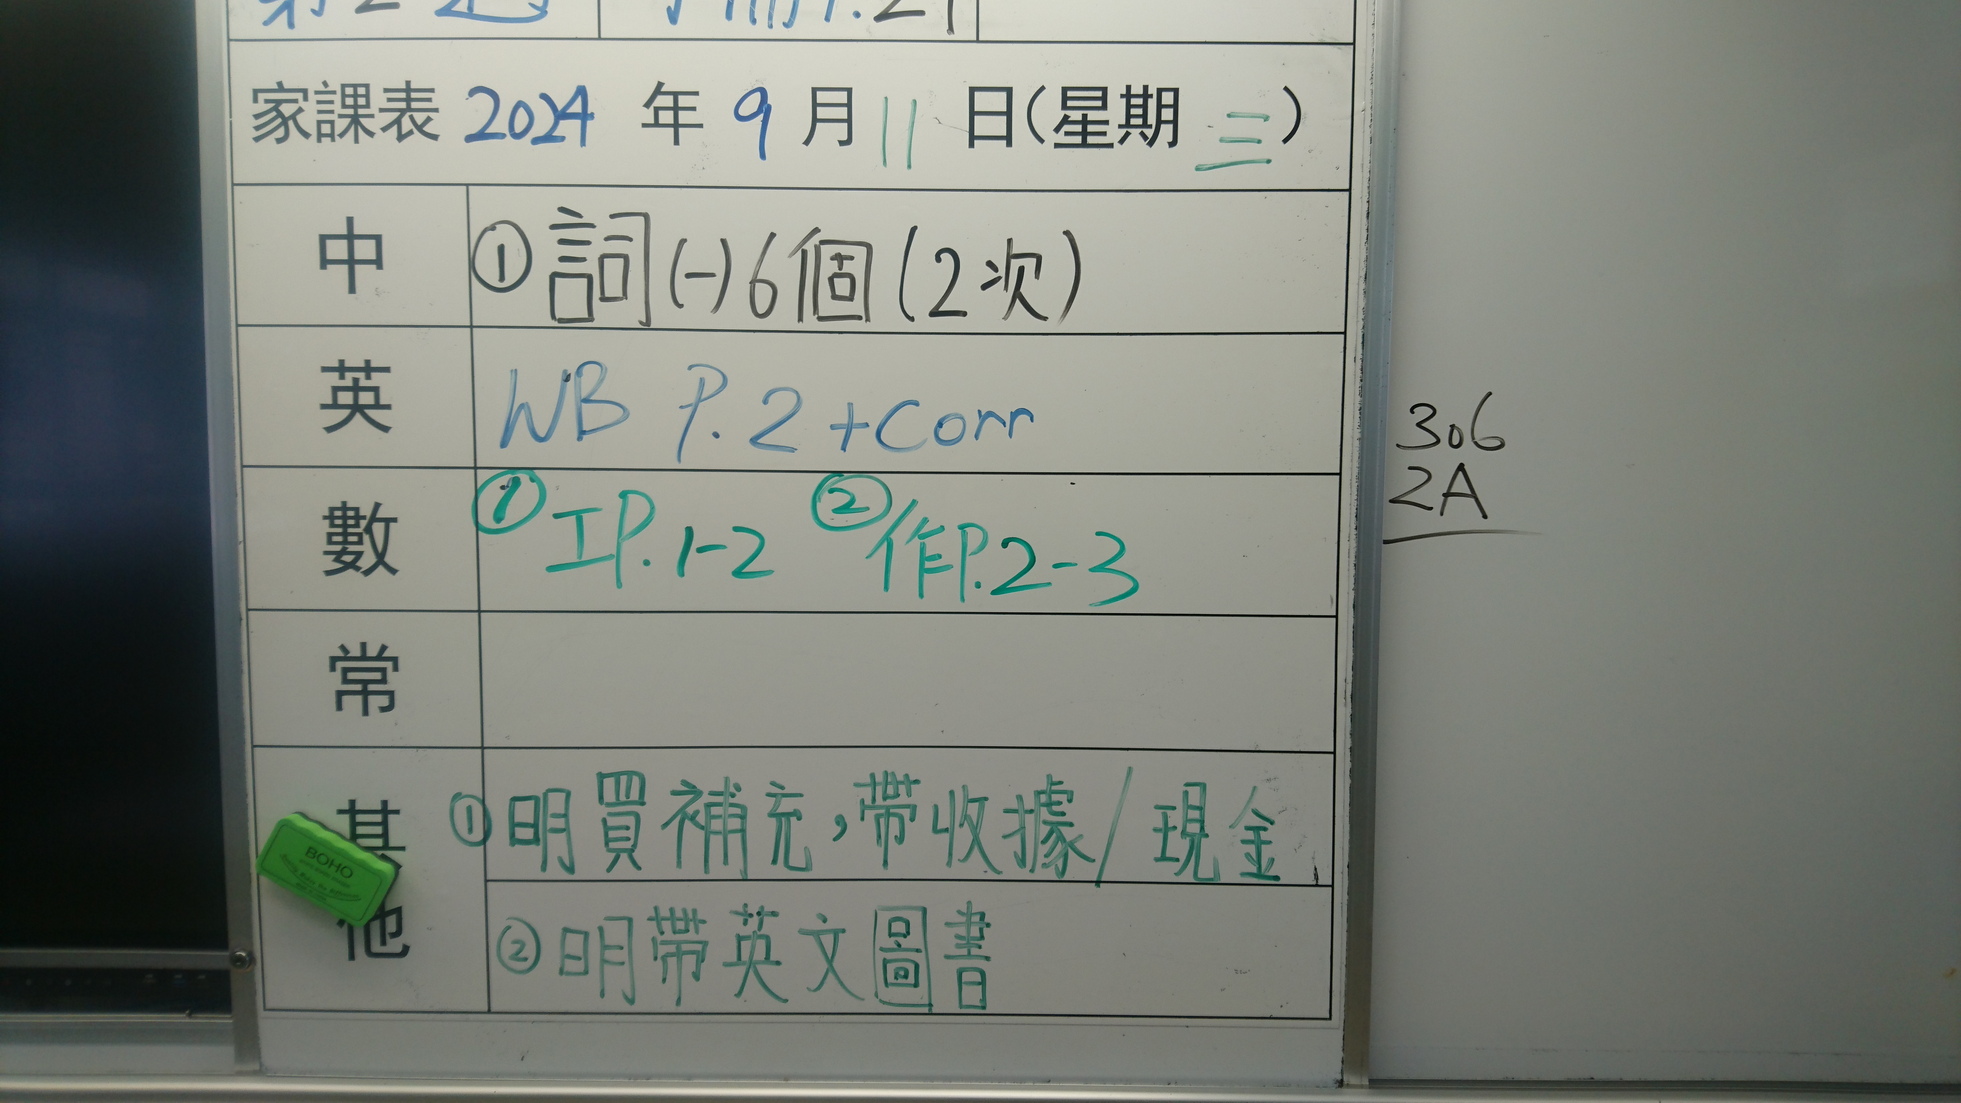 第2週 手冊P.21
家課表 2024 年 9 月 11 日(星期 三)
中 ①詞(一)6個(2次)
英 WB P.2 +Corr
數 ①工P.1-2 ②作P.2-3
常
其他 ①明買補充，帶收據/現金
②明帶英文圖書
306
2A
BOHO